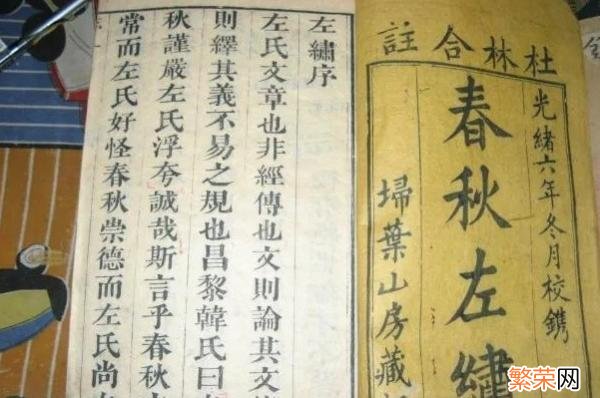 杜林合註
光緒六年冬月校鐫
春秋左繡
埽葉山房藏
左繡序
左氏文章也非經傳也文則論其文
則繹其義不易之規也昌黎韓氏曰
秋謹嚴左氏浮夸誠哉斯言乎春秋
常而左氏好怪春秋崇德而左氏尚
繁荣网